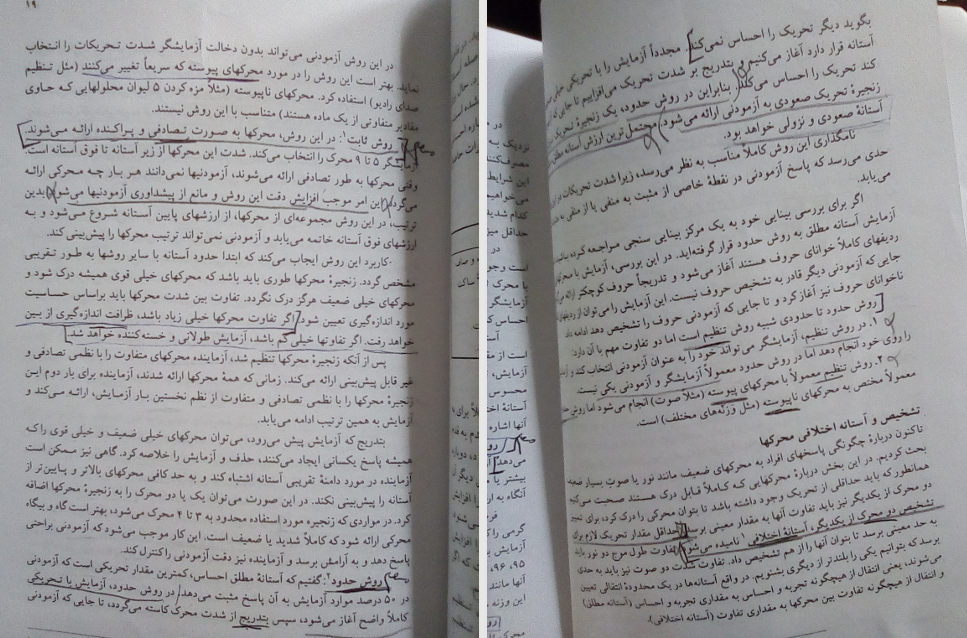 ۱۹
در این روش آزمودنی می‌تواند بدون دخالت آزمایشگر شدت تحریکات را انتخاب
نماید. بهتر است این روش را در مورد محرکهای پیوسته که سریعاً تغییر می‌کنند (مثل تنظیم
صدای رادیو) استفاده کرد. محرکهای ناپیوسته (مثلاً مزه کردن ۵ لیوان محلولهایی که حاوی
مقادیر متفاوتی از یک ماده هستند) متناسب با این روش نیستند.
روش ثابت¹: در این روش، محرکها به صورت تصادفی و پراکنده ارائه می‌شوند.
آزمایشگر ۵ تا ۹ محرک را انتخاب می‌کند. شدت این محرکها از زیر آستانه تا فوق آستانه است.
وقتی محرکها به طور تصادفی ارائه می‌شوند، آزمودنیها نمی‌دانند هر بار چه محرکی ارائه
می‌گردد. این امر موجب افزایش دقت این روش و مانع از پیشداوری آزمودنیها می‌شود. بدین
ترتیب، در این روش مجموعه‌ای از محرکها، از ارزشهای پایین آستانه شروع می‌شود و به
ارزشهای فوق آستانه خاتمه می‌یابد و آزمودنی نمی‌تواند ترتیب محرکها را پیش‌بینی کند.
کاربرد این روش ایجاب می‌کند که ابتدا حدود آستانه با سایر روشها به طور تقریبی
مشخص گردد. زنجیرهٔ محرکها طوری باید باشد که محرکهای خیلی قوی همیشه درک شود و
محرکهای خیلی ضعیف هرگز درک نگردد. تفاوت بین شدت محرکها باید براساس حساسیت
مورد اندازه‌گیری تعیین شود. اگر تفاوت محرکها خیلی زیاد باشد، ظرافت اندازه‌گیری از بین
خواهد رفت. اگر تفاوتها خیلی کم باشد، آزمایش طولانی و خسته‌کننده خواهد شد.
پس از آنکه زنجیرهٔ محرکها تنظیم شد، آزماینده محرکهای متفاوت را با نظمی تصادفی و
غیر قابل پیش‌بینی ارائه می‌کند. زمانی که همهٔ محرکها ارائه شدند، آزماینده برای بار دوم این
زنجیرهٔ محرکها را با نظمی تصادفی و متفاوت از نظم نخستین بار آزمایش، ارائه می‌کند و
آزمایش به همین ترتیب ادامه می‌یابد.
بتدریج که آزمایش پیش می‌رود، می‌توان محرکهای خیلی ضعیف و خیلی قوی را که
همیشه پاسخ یکسانی ایجاد می‌کنند، حذف و آزمایش را خلاصه کرد. گاهی نیز ممکن است
آزماینده در مورد دامنهٔ تقریبی آستانه اشتباه کند و به حد کافی محرکهای بالاتر و پایین‌تر از
آستانه را پیش‌بینی نکند. در این صورت می‌توان یک یا دو محرک را به زنجیرهٔ محرکها اضافه
کرد. در مواردی که زنجیره مورد استفاده محدود به ۳ تا ۴ محرک می‌شود، بهتر است گاه و بیگاه
محرکی ارائه شود که کاملاً شدید یا ضعیف است. این کار موجب می‌شود که آزمودنی براحتی
پاسخ دهد و به آرامش برسد و آزماینده نیز دقت آزمودنی را کنترل کند.
روش حدود²: گفتیم که آستانهٔ مطلق احساس، کمترین مقدار تحریکی است که آزمودنی
در ۵۰ درصد موارد آزمایش به آن پاسخ مثبت می‌دهد. در روش حدود، آزمایش با تحریکی
کاملاً واضح آغاز می‌شود، سپس بتدریج از شدت محرک کاسته می‌گردد، تا جایی که آزمودنی
بگوید دیگر تحریک را احساس نمی‌کند. مجدداً آزمایش را با تحریکی خیلی
آستانه قرار دارد آغاز می‌کنیم و بتدریج بر شدت تحریک می‌افزاییم تا جایی که
کند تحریک را احساس می‌کند. بنابراین در روش حدود، یک زنجیرهٔ تحریک
زنجیرهٔ تحریک صعودی به آزمودنی ارائه می‌شود. محتمل‌ترین ارزش آستانه مطلق
آستانهٔ صعودی و نزولی خواهد بود.
نامگذاری این روش کاملاً مناسب به نظر می‌رسد، زیرا شدت تحریکات
حدی می‌رسد که پاسخ آزمودنی در نقطهٔ خاصی از مثبت به منفی یا از منفی به
می‌یابد.
اگر برای بررسی بینایی خود به یک مرکز بینایی سنجی مراجعه کرده
آزمایش آستانه مطلق به روش حدود قرار گرفته‌اید. در این بررسی، آزمایش با
ردیفهای کاملاً خوانای حروف هستند آغاز می‌شود و تدریجاً حروف کوچکتر
جایی که آزمودنی دیگر قادر به تشخیص حروف نیست. این آزمایش را می‌توان از
ناخوانای حروف نیز آغاز کرد و تا جایی که آزمودنی حروف را تشخیص دهد ادامه
روش حدود تا حدودی شبیه روش تنظیم است اما دو تفاوت مهم با آن دارد:
۱. در روش تنظیم، آزمایشگر می‌تواند خود را به عنوان آزمودنی انتخاب کند و
را روی خود انجام دهد اما در روش حدود معمولاً آزمایشگر و آزمودنی یکی نیست.
۲. روش تنظیم معمولاً با محرکهای پیوسته (مثلاً صوت) انجام می‌شود اما روش
معمولاً مختص به محرکهای ناپیوسته (مثل وزنه‌های مختلف) است.
تشخیص و آستانه اختلافی محرکها
تاکنون دربارهٔ چگونگی پاسخهای افراد به محرکهای ضعیف مانند نور یا صوت بسیار
بحث کردیم. در این بخش دربارهٔ محرکهایی که کاملاً قابل درک هستند صحبت می‌کنیم
همانطور که باید حداقلی از تحریک وجود داشته باشد تا بتوان محرکی را درک کرد، برای
دو محرک از یکدیگر نیز باید تفاوت آنها به مقدار معینی برسد. حداقل مقدار تحریک لازم برای
تشخیص دو محرک از یکدیگر، آستانهٔ اختلافی نامیده می‌شود. تفاوت طول موج دو نور باید
به حد معینی برسد تا بتوان آنها را از هم تشخیص داد. تفاوت شدت دو صوت نیز باید به حدی
برسد که بتوانیم یکی را بلندتر از دیگری بشنویم. در واقع آستانه‌ها در یک محدودهٔ انتقالی تعیین
می‌شوند، یعنی انتقال از هیچگونه تجربه و احساس به مقداری تجربه و احساس (آستانه مطلق)
و انتقال از هیچگونه تفاوت بین محرکها به مقداری تفاوت (آستانه اختلافی).